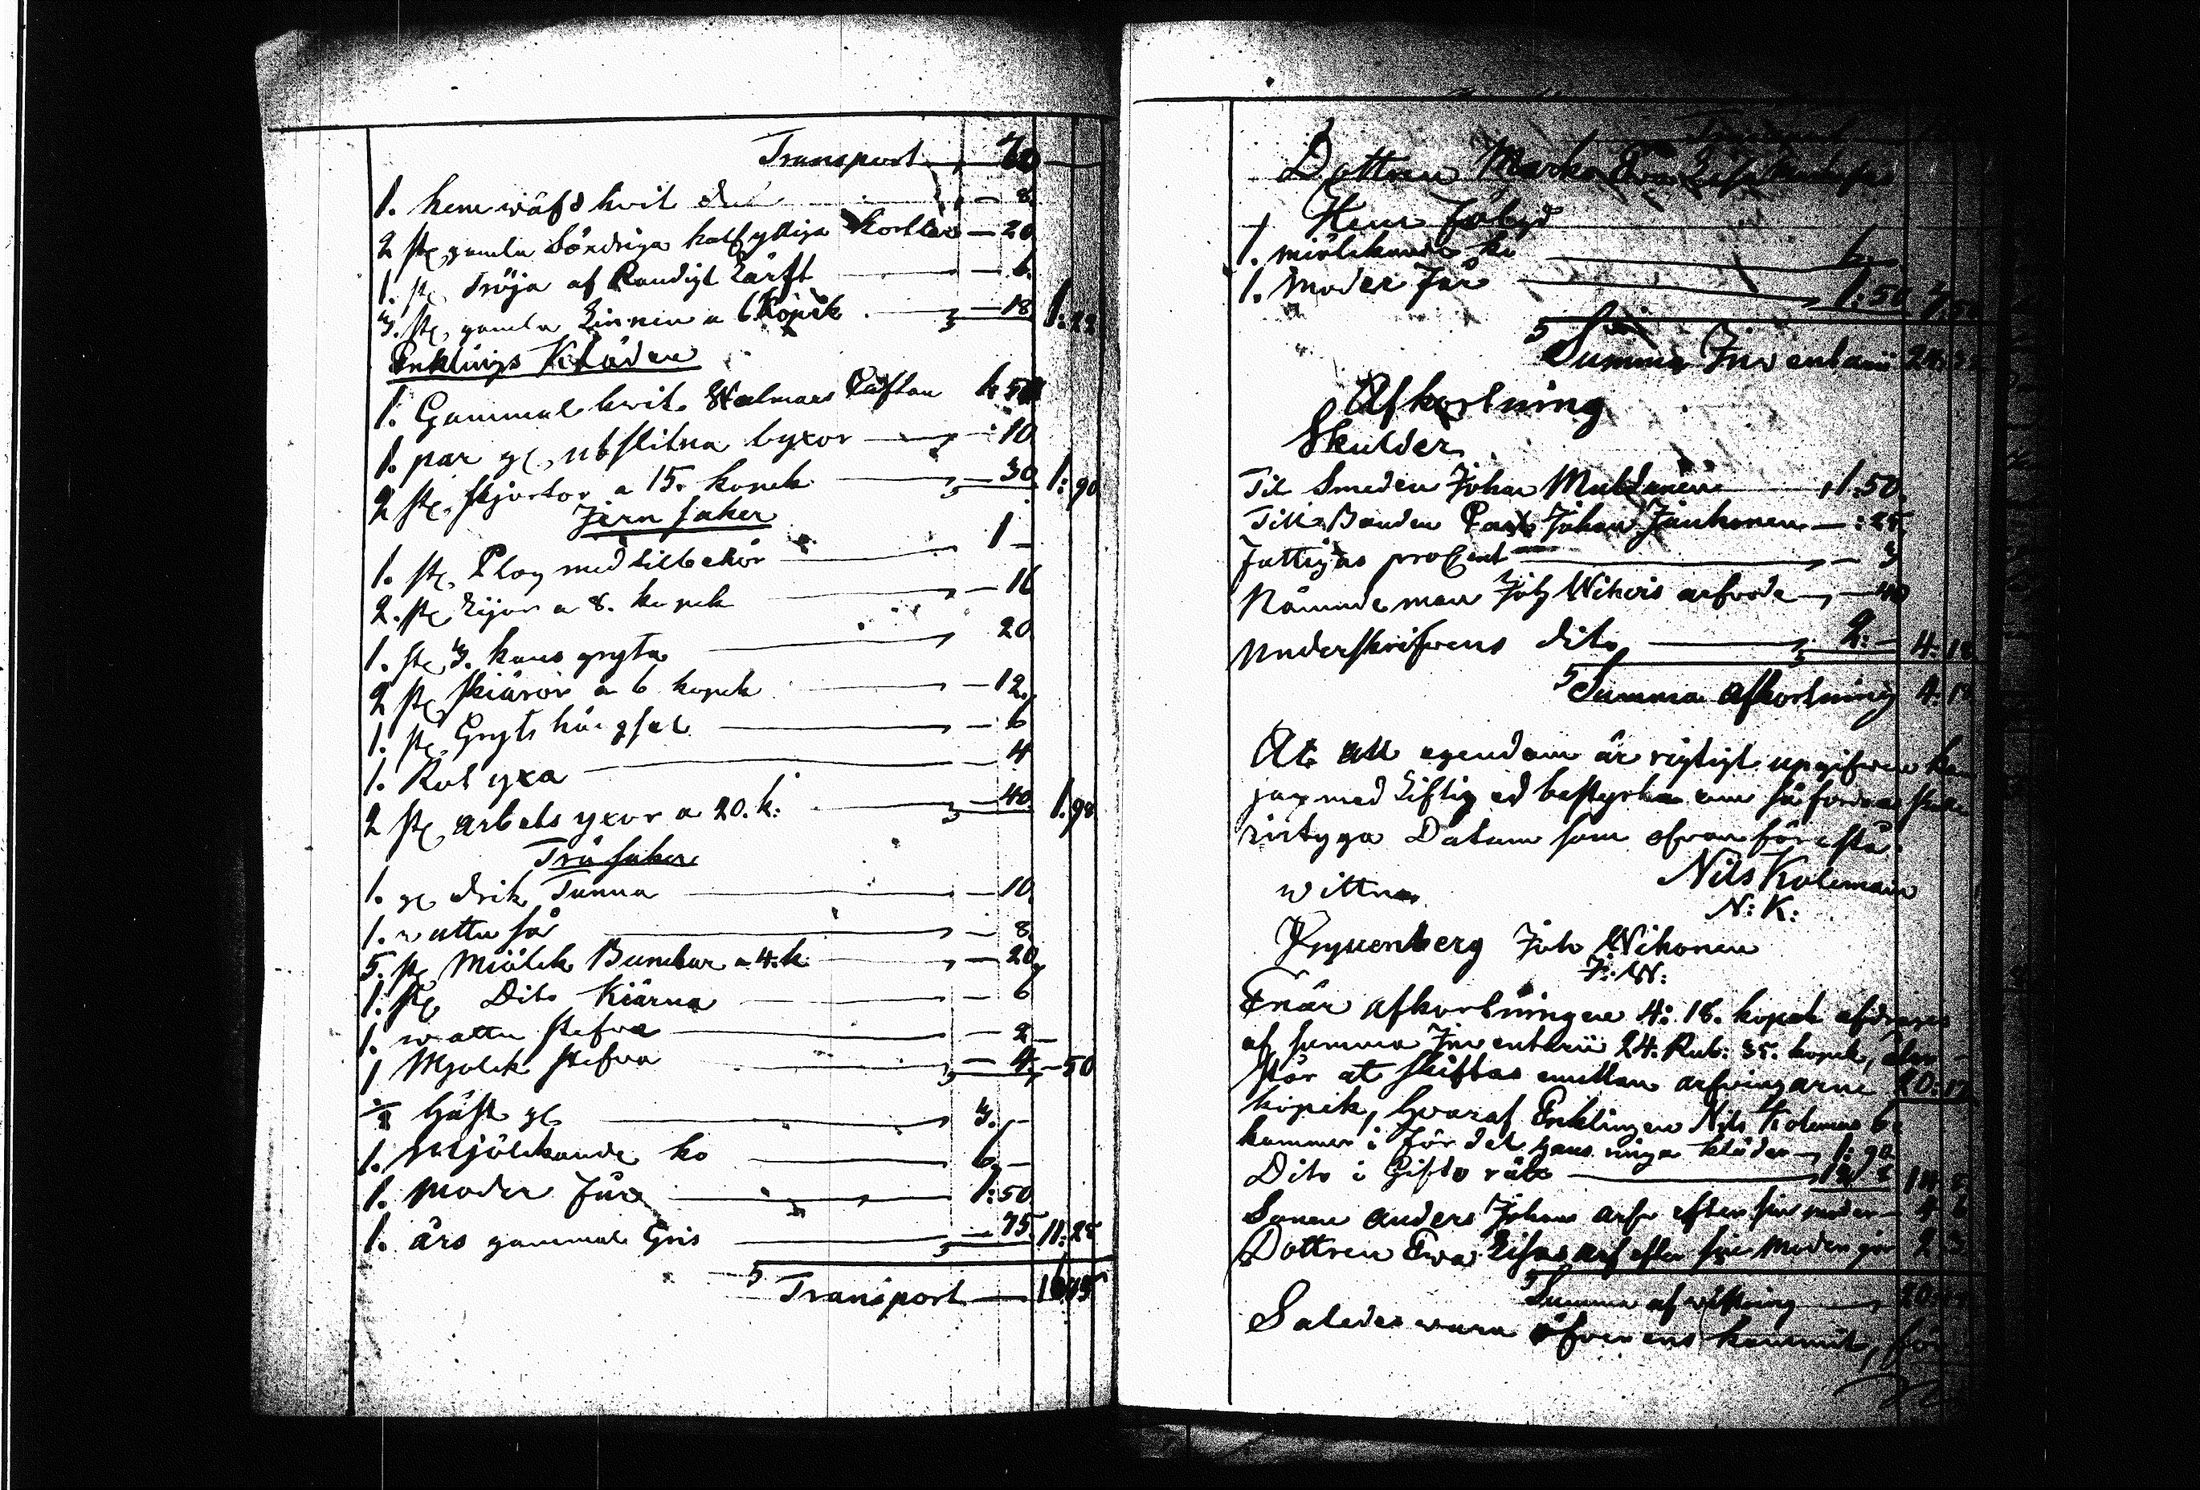 Transport — 70 —
1. hem wäfd hvit — 8.
2 st, gamla Söndriga halfylliga Kortlar — 20
1. st, Tröja af Randigt Lärft — 6.
3. st, gamla Linnen a 6 Kopek — 18 1:22
Enklings Kläder
1. Gammal hvit Walmars Kaftan 1:50
1. par gl, utslitna byxor — 10
2 st, skjortor a 15. kopek — 30 1:90
Jern saker
1. st, Plog med tilbehör — 1 —
2. st Lijor a 8. kopek — 16
1. st, 3. kans gryta — 20
2 st, skiäror a 6 kopek — 12
1. st, Gryt hängsel — 6
1. Rot yxa — 4
2 st, arbets yxor a 20. k: — 40 1:98
Trä saker
1. gl drik Tunna — 10
1. wattu så — 8.
5. st, Miölck Bunckar a 4. k — 20
1. st, Dito Kiärna — 6
1. wattu stefva — 2 —
1 Mjölck stefva — 4. — 50
1/2 häst gl — 3. —
1. Mjölckande ko — 6 —
1. Moder Får — 1:50
1. års gammal Gris — 75 11:25
Transport — 16:85
Transport
Dottren
Hem följd
1. miölckande ko — 6 —
1. Moder Får — 1:50 7:50
Summa Inventarii 24:35
Afkortning
Skulder
Til Smeden Johan Muldanen — 1:50
Till Bonden Johan Jänhonen — :25
Fattigas proCent — 3
Nämndeman Joh Wihois arfvode — 40
Underskrifvens dito — 2: — 4:18
Summa afkortning 4:18
At all egendom är rigtigt upgifven kan
jag med Liftig ed bestyrka om så fordras skulle
intyga Datum som ofvan förestå.
Nils Kolemain
N: K:
wittna
Joh Wihonen
J: W:
Enär afkortningen 4: 18. kopek afdrages
af summa Inventarii 24. Rub: 35. kopek, åter
står at skiftas emillan arfvingarne 20:17
kopek, hvaraf Enklingen Nils Kolemain be
kommer i för det hans ringa kläder — 1:90
Dito i Gifto rätt —
Sonen anders Johan arfv efter sin moder — 4
Dottren Eva Lisas arf efter sin Moder gör 2
Summa afvitring — 20
Saledes wara öfverens kommit, för